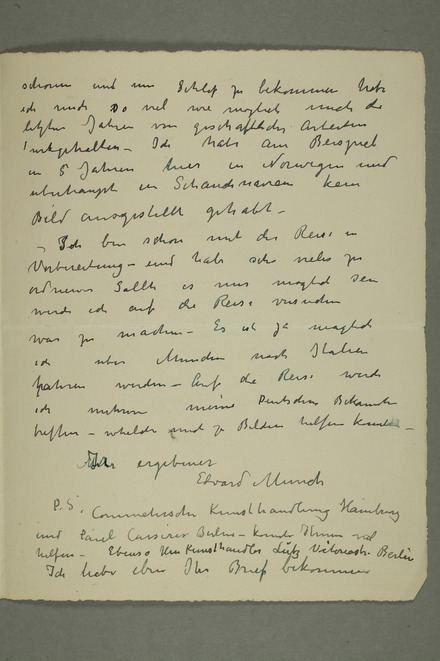 schonen und um Schlaf zu bekommen habe
ich mich so viel wie moglich mich die
letzten Jahren von geschaftlichen Arbeiten
– Ich habe am Beispiel
in 5 Jahren hier in Norwegen und
uberhaupt in Skandinavien kein
Bild ausgestellt gehabt –
– Ich bin schon mit der Reise in
Vorbereitung – und habe sehr vieles zu
ordnen Sollte es mir moglich sein
werde ich auf die Reise versuchen
was zu machen – Es ist ja moglich
ich uber Munchen nach Italien
fahren werden – Auf die Reise werde
ich mehrere meine Deutschen Bekannte
treffen – zu Bilder helfen
Ihr ergebener
Edvard Munch
P.S. Commetersche Kunsthandlung Hamburg
und Paul Cassirer Berlin – konnte Ihnen viel
helfen – Ebenso Kunsthandler Lutz Berlin
Ich habe eben Ihr Brief bekommen